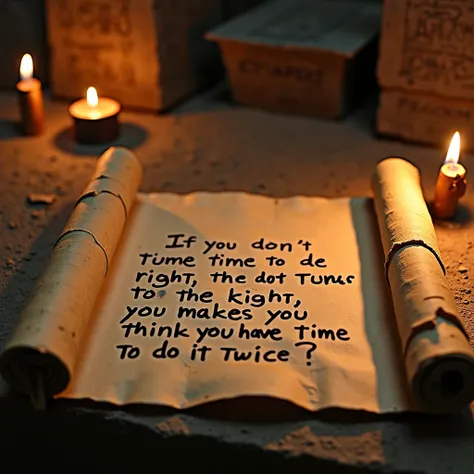 If you don't
Tume time to de
right, the dot Tunc
to the kight,
you makes you
think you have time
To do it Twice?